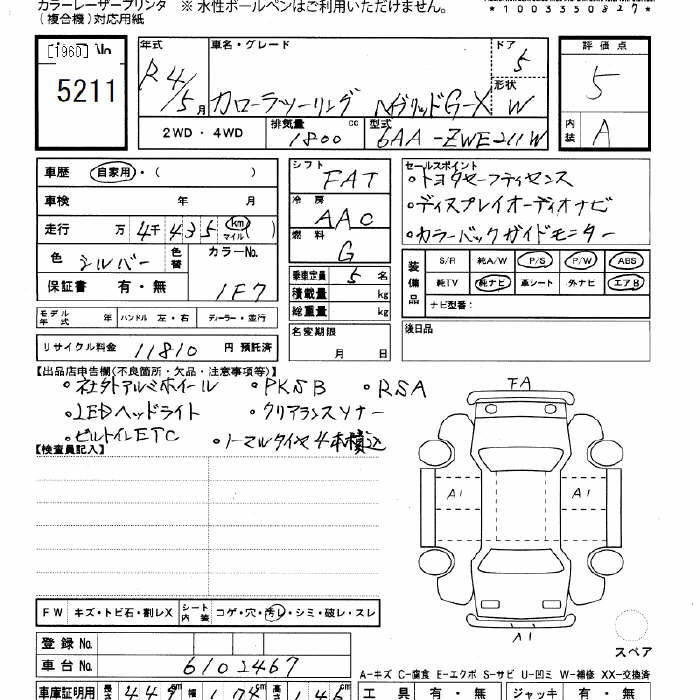 カラーレーザープリンタ ※ 水性ボールペンはご利用いただけません。
(複合機)対応用紙
*1003350827*
[1960]
5211
年式 車名・グレード ドア 5 評価点
R4/5月 カローラツーリング ハイブリッドG-X 形状 W 5
2WD・4WD 排気量 1800 cc 型式 6AA-ZWE211W 内装 A
車歴 自家用・( )
車検 年 月
走行 万 4千 435 (km マイル)
色 シルバー 色替 カラーNo.
保証書 有・無 1F7
モデル年式 年 ハンドル 左・右 ディーラー・並行
リサイクル料金 11810 円 預託済
シフト FAT
冷房 AAC
燃料 G
乗車定員 5 名
積載量 kg
総重量 kg
名変期限
月 日
セールスポイント
・トヨタセーフティセンス
・ディスプレイオーディオナビ
・カラーバックガイドモニター
装備品 S/R 純A/W P/S P/W ABS
純TV 純ナビ 革シート 外ナビ エアB
ナビ型番:
後日品
【出品店申告欄(不良箇所・欠品・注意事項等)】
・社外アルミホイール ・PKSB ・RSA
・LEDヘッドライト ・クリアランスソナー
・ビルトインETC ・ノーマルタイヤ4本積込
【検査員記入】
FA
A1 A1
A1
スペア
FW キズ・トビ石・割レX シート内装 コゲ・穴・汚レ・シミ・破レ・スレ
登録No.
車台No. 6102467
A-キズ C-腐食 E-エクボ S-サビ U-凹ミ W-補修 XX-交換済
車庫証明用 長さ 449 cm 幅 174 cm 高さ 146 工具 有・無 ジャッキ 有・無